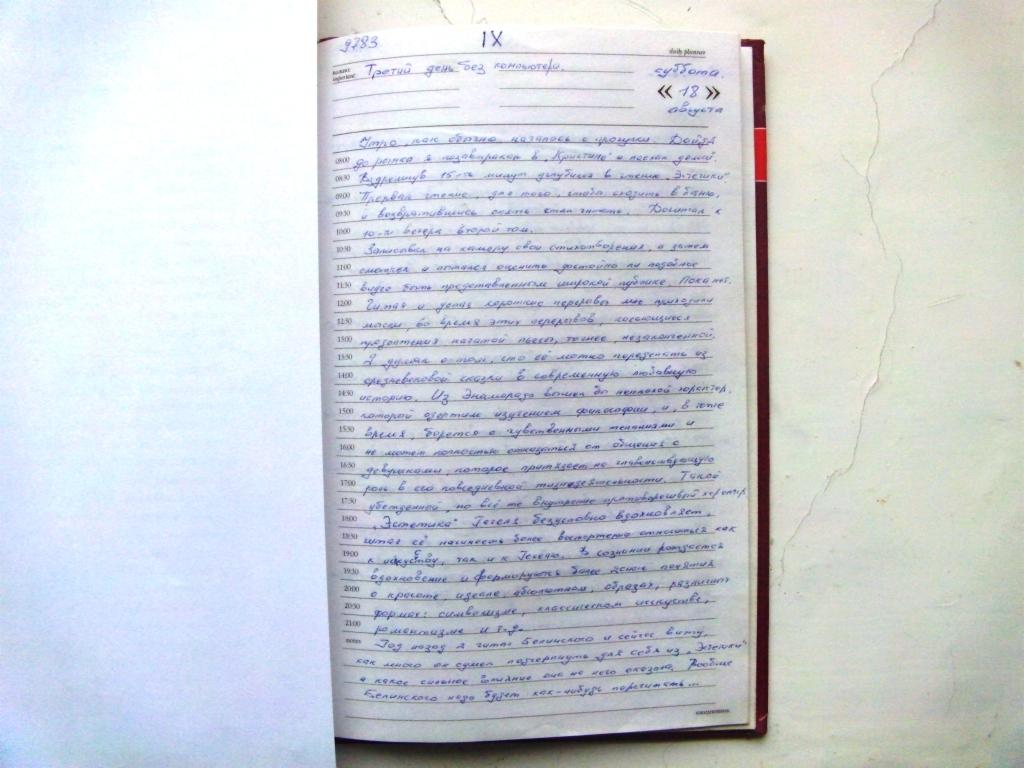 9783 IX
daily planner
Третий день без компьютера. суббота.
important:
« 18 »
августа
Утро, как обычно, началось с прогулки. Дойдя
08:00 до рынка я позавтракал в „Кристине" и поехал домой.
08:30 Вздремнув 15-ть минут углубился в чтение „Эстетики".
09:00 Прервал чтение, для того, чтобы сходить в баню,
09:30 и возвратившись опять стал читать. Дочитал к
10:00 10-ти вечера второй том.
10:30 Записывал на камеру свои стихотворения, а затем
11:00 смотрел и пытался оценить достойно ли подобное
11:30 видео быть представленным широкой публике. Пока нет.
12:00 Читая и делая короткие перерывы мне приходили
12:30 мысли, во время этих перерывов, касающиеся
13:00 продолжения начатой пьесы, точнее, незаконченной.
13:30 Я думал о том, что её можно переделать из
14:00 средневековой сказки в современную любовную
14:30 историю. Из Энаморадо вышел бы неплохой характер.
15:00 который одержим изучением философии, и, в тоже
15:30 время, борется с чувственными желаниями и
16:00 не может полностью отказаться от общения с
16:30 девушками, которое притязает на главенствующую
17:00 роль в его повседневной жизнедеятельности. Такой
17:30 убежденный, но всё же внутренне противоречивый характер
18:00 „Эстетика" Гегеля безусловно вдохновляет.
18:30 читая её начинаешь более восторженно относиться как
19:00 к искусству, так и к Гегелю. В сознании рождается
19:30 вдохновение и формируются более ясные понятия
20:00 о красоте, идеале, абсолютном, образах, различных
20:30 формах: символизме, классическом искусстве,
21:00 романтизме и т.д.
notes Год назад я читал Белинского и сейчас вижу,
как много он сумел подчерпнуть для себя из „Эстетики"
и какое сильное влияние она на него оказала. Вообще
Белинского надо будет как-нибудь перечитать...